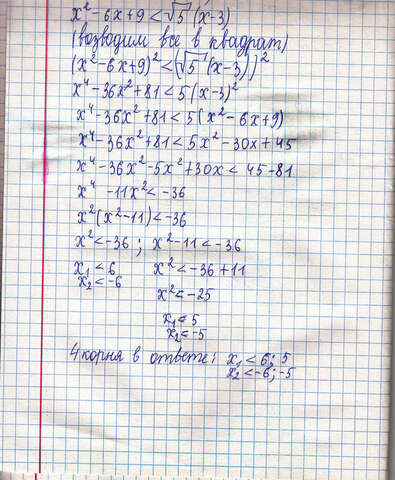 x² - 6x + 9 < √5 (x - 3)
(возводим все в квадрат)
(x² - 6x + 9)² < (√5 (x - 3))²
x⁴ - 36x² + 81 < 5 (x - 3)²
x⁴ - 36x² + 81 < 5 (x² - 6x + 9)
x⁴ - 36x² + 81 < 5x² - 30x + 45
x⁴ - 36x² - 5x² + 30x < 45 - 81
x⁴ - 11x² < -36
x² (x² - 11) < -36
x² < -36 ; x² - 11 < -36
x₁ < 6 x² < -36 + 11
x₂ < -6
x² < -25
x₁ < 5
x₂ < -5
4 корня в ответе: x₁ < 6; 5
x₂ < -6; -5